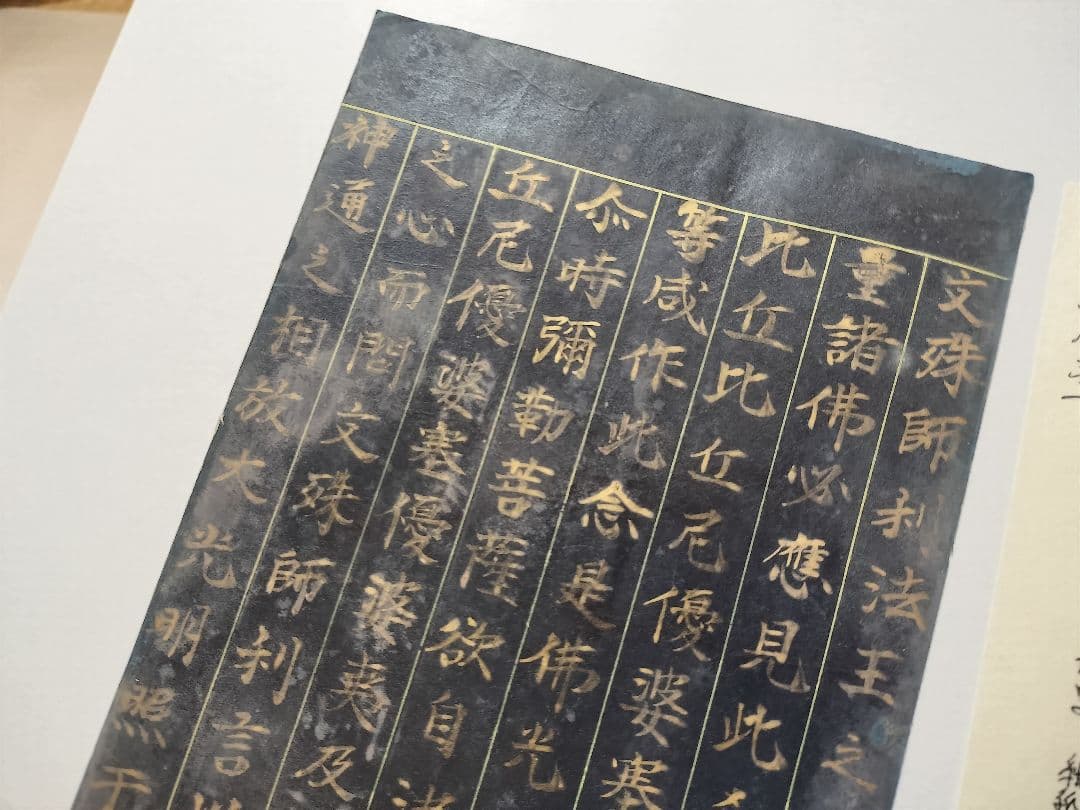 文殊師利法王之
量諸佛必應見此
比丘比丘尼優婆塞
等咸作此念是佛光
尒時彌勒菩薩欲自
丘尼優婆塞優婆夷及
之心而問文殊師利言
神通之相放大光明照于